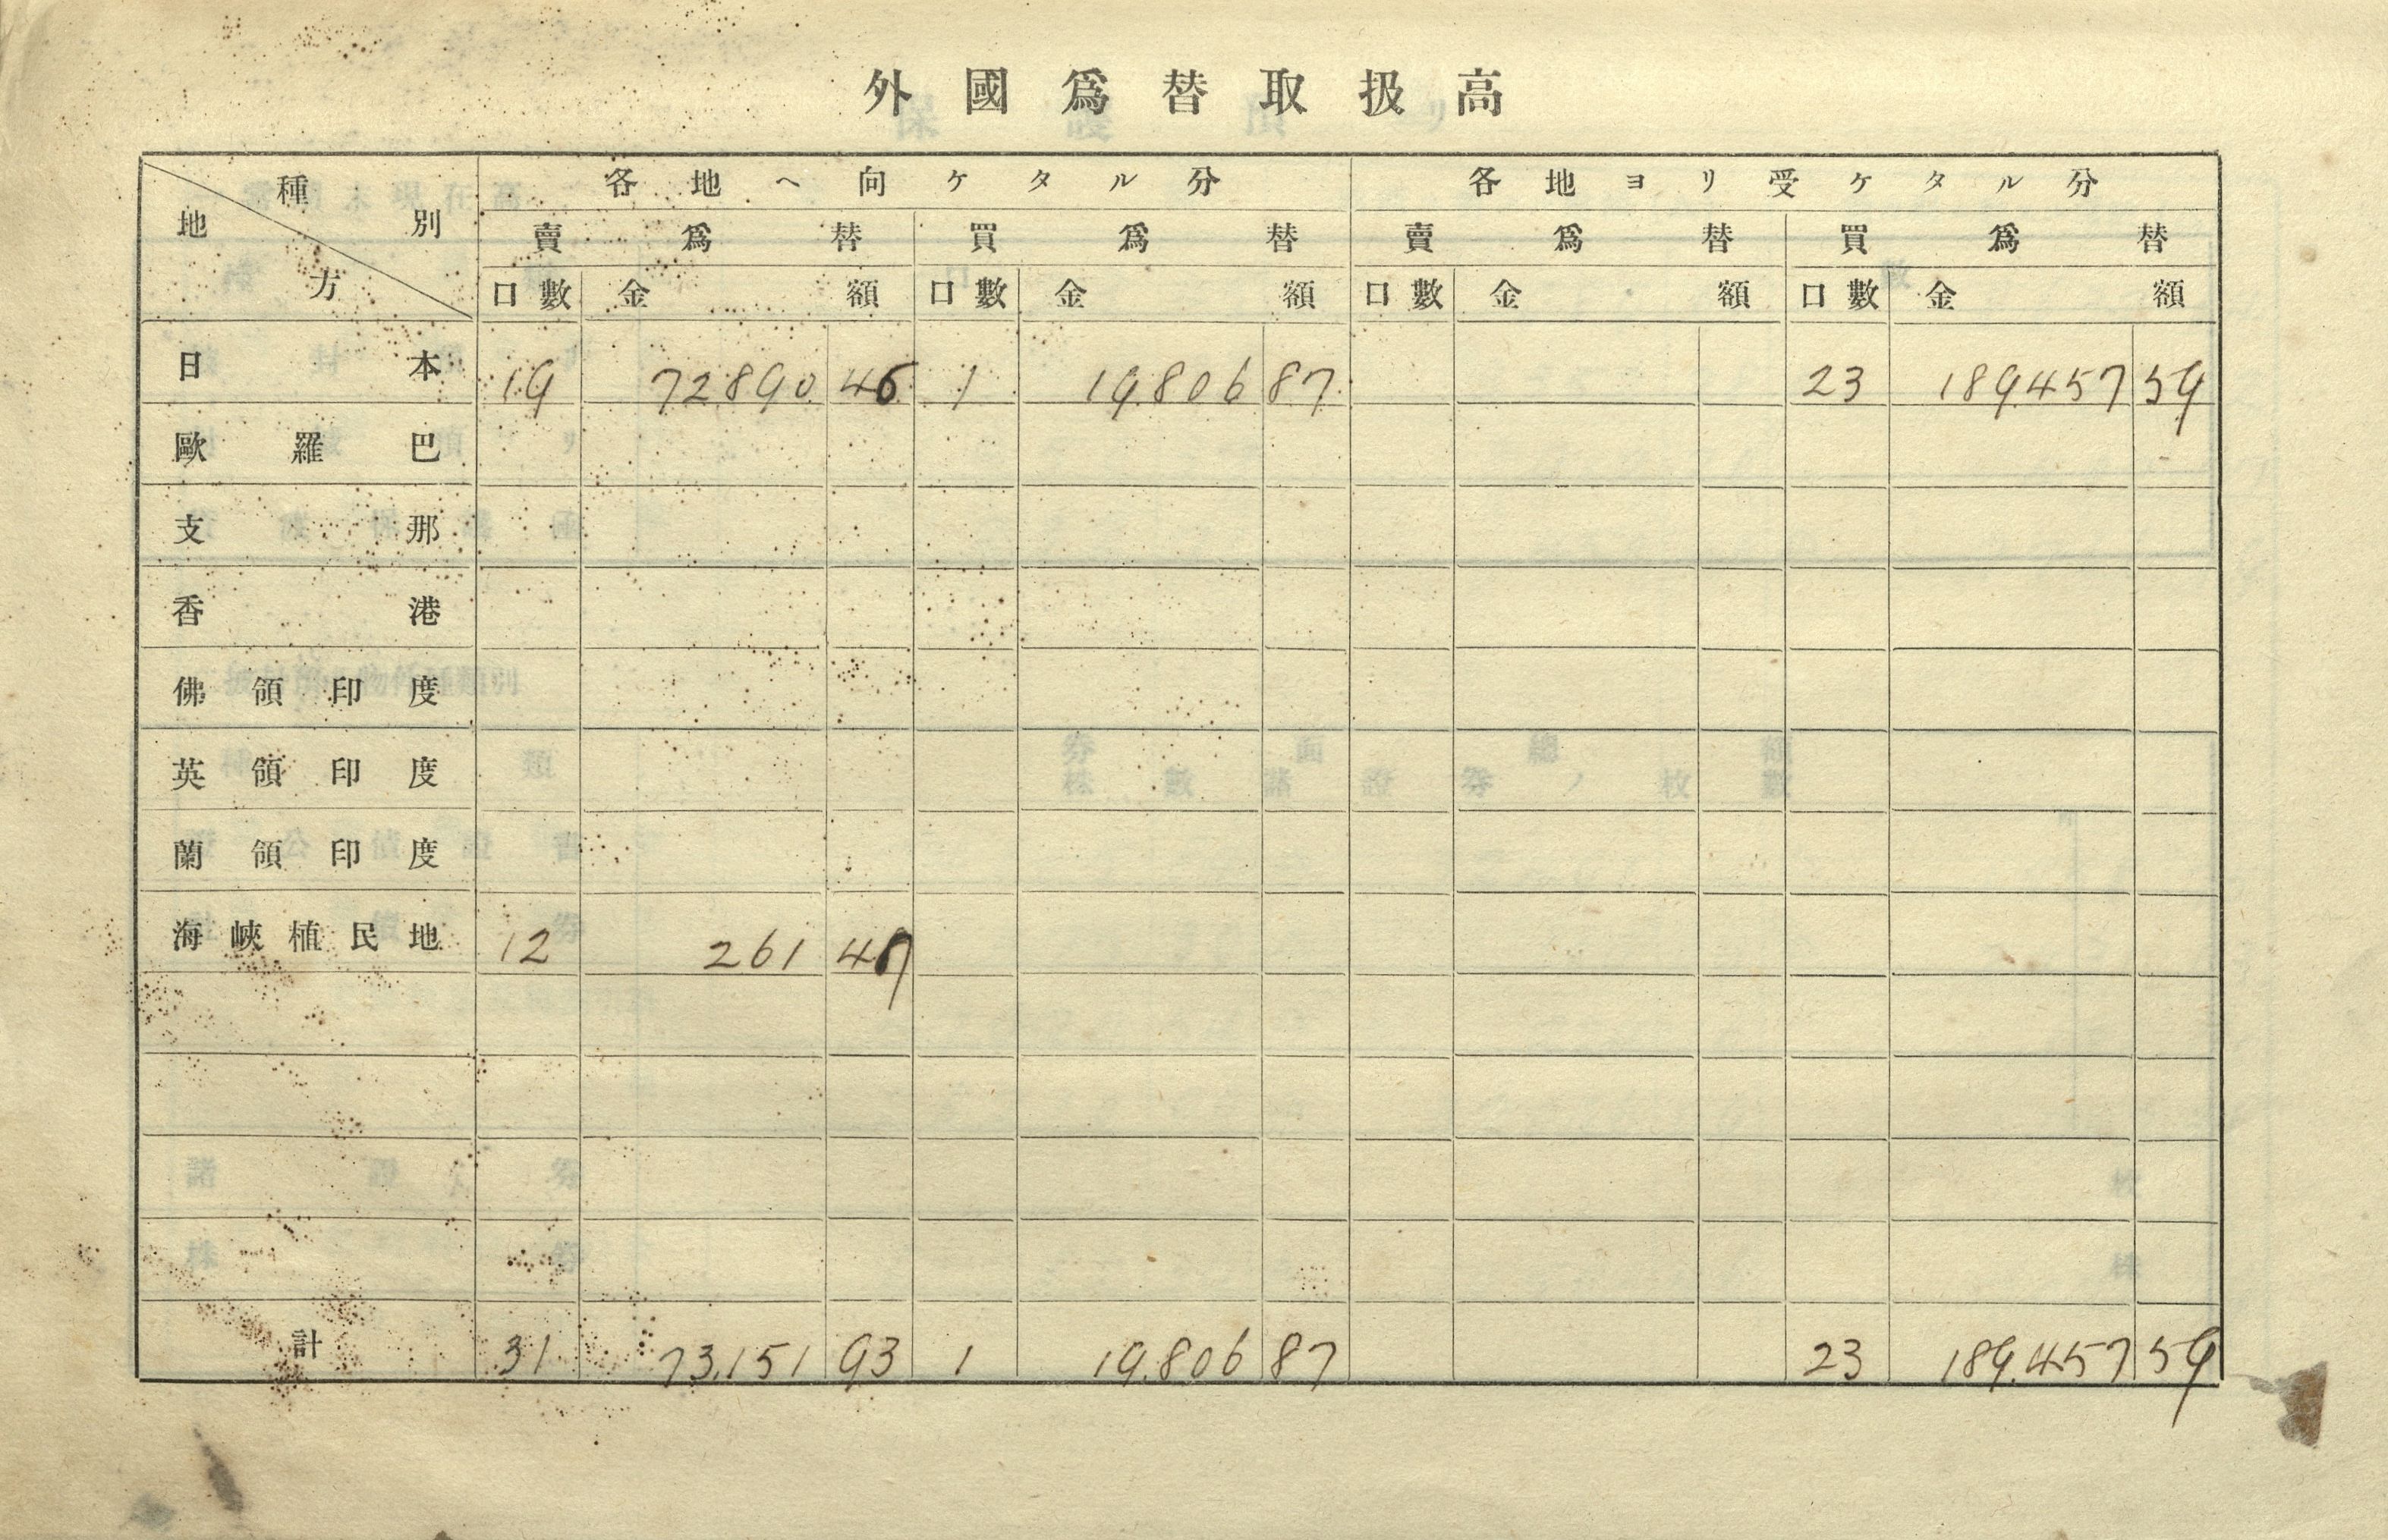 外國爲替取扱高
種別 地方 各地ヘ向ケタル分 各地ヨリ受ケタル分
賣爲替 買爲替 賣爲替 買爲替
口數 金額 口數 金額 口數 金額 口數 金額
日本 19 72890 46 1 19.806 87 23 189.457 59
歐羅巴
支那
香港
佛領印度
英領印度
蘭領印度
海峽植民地 12 261 47
計 31 73.151 93 1 19.806 87 23 189.457 59